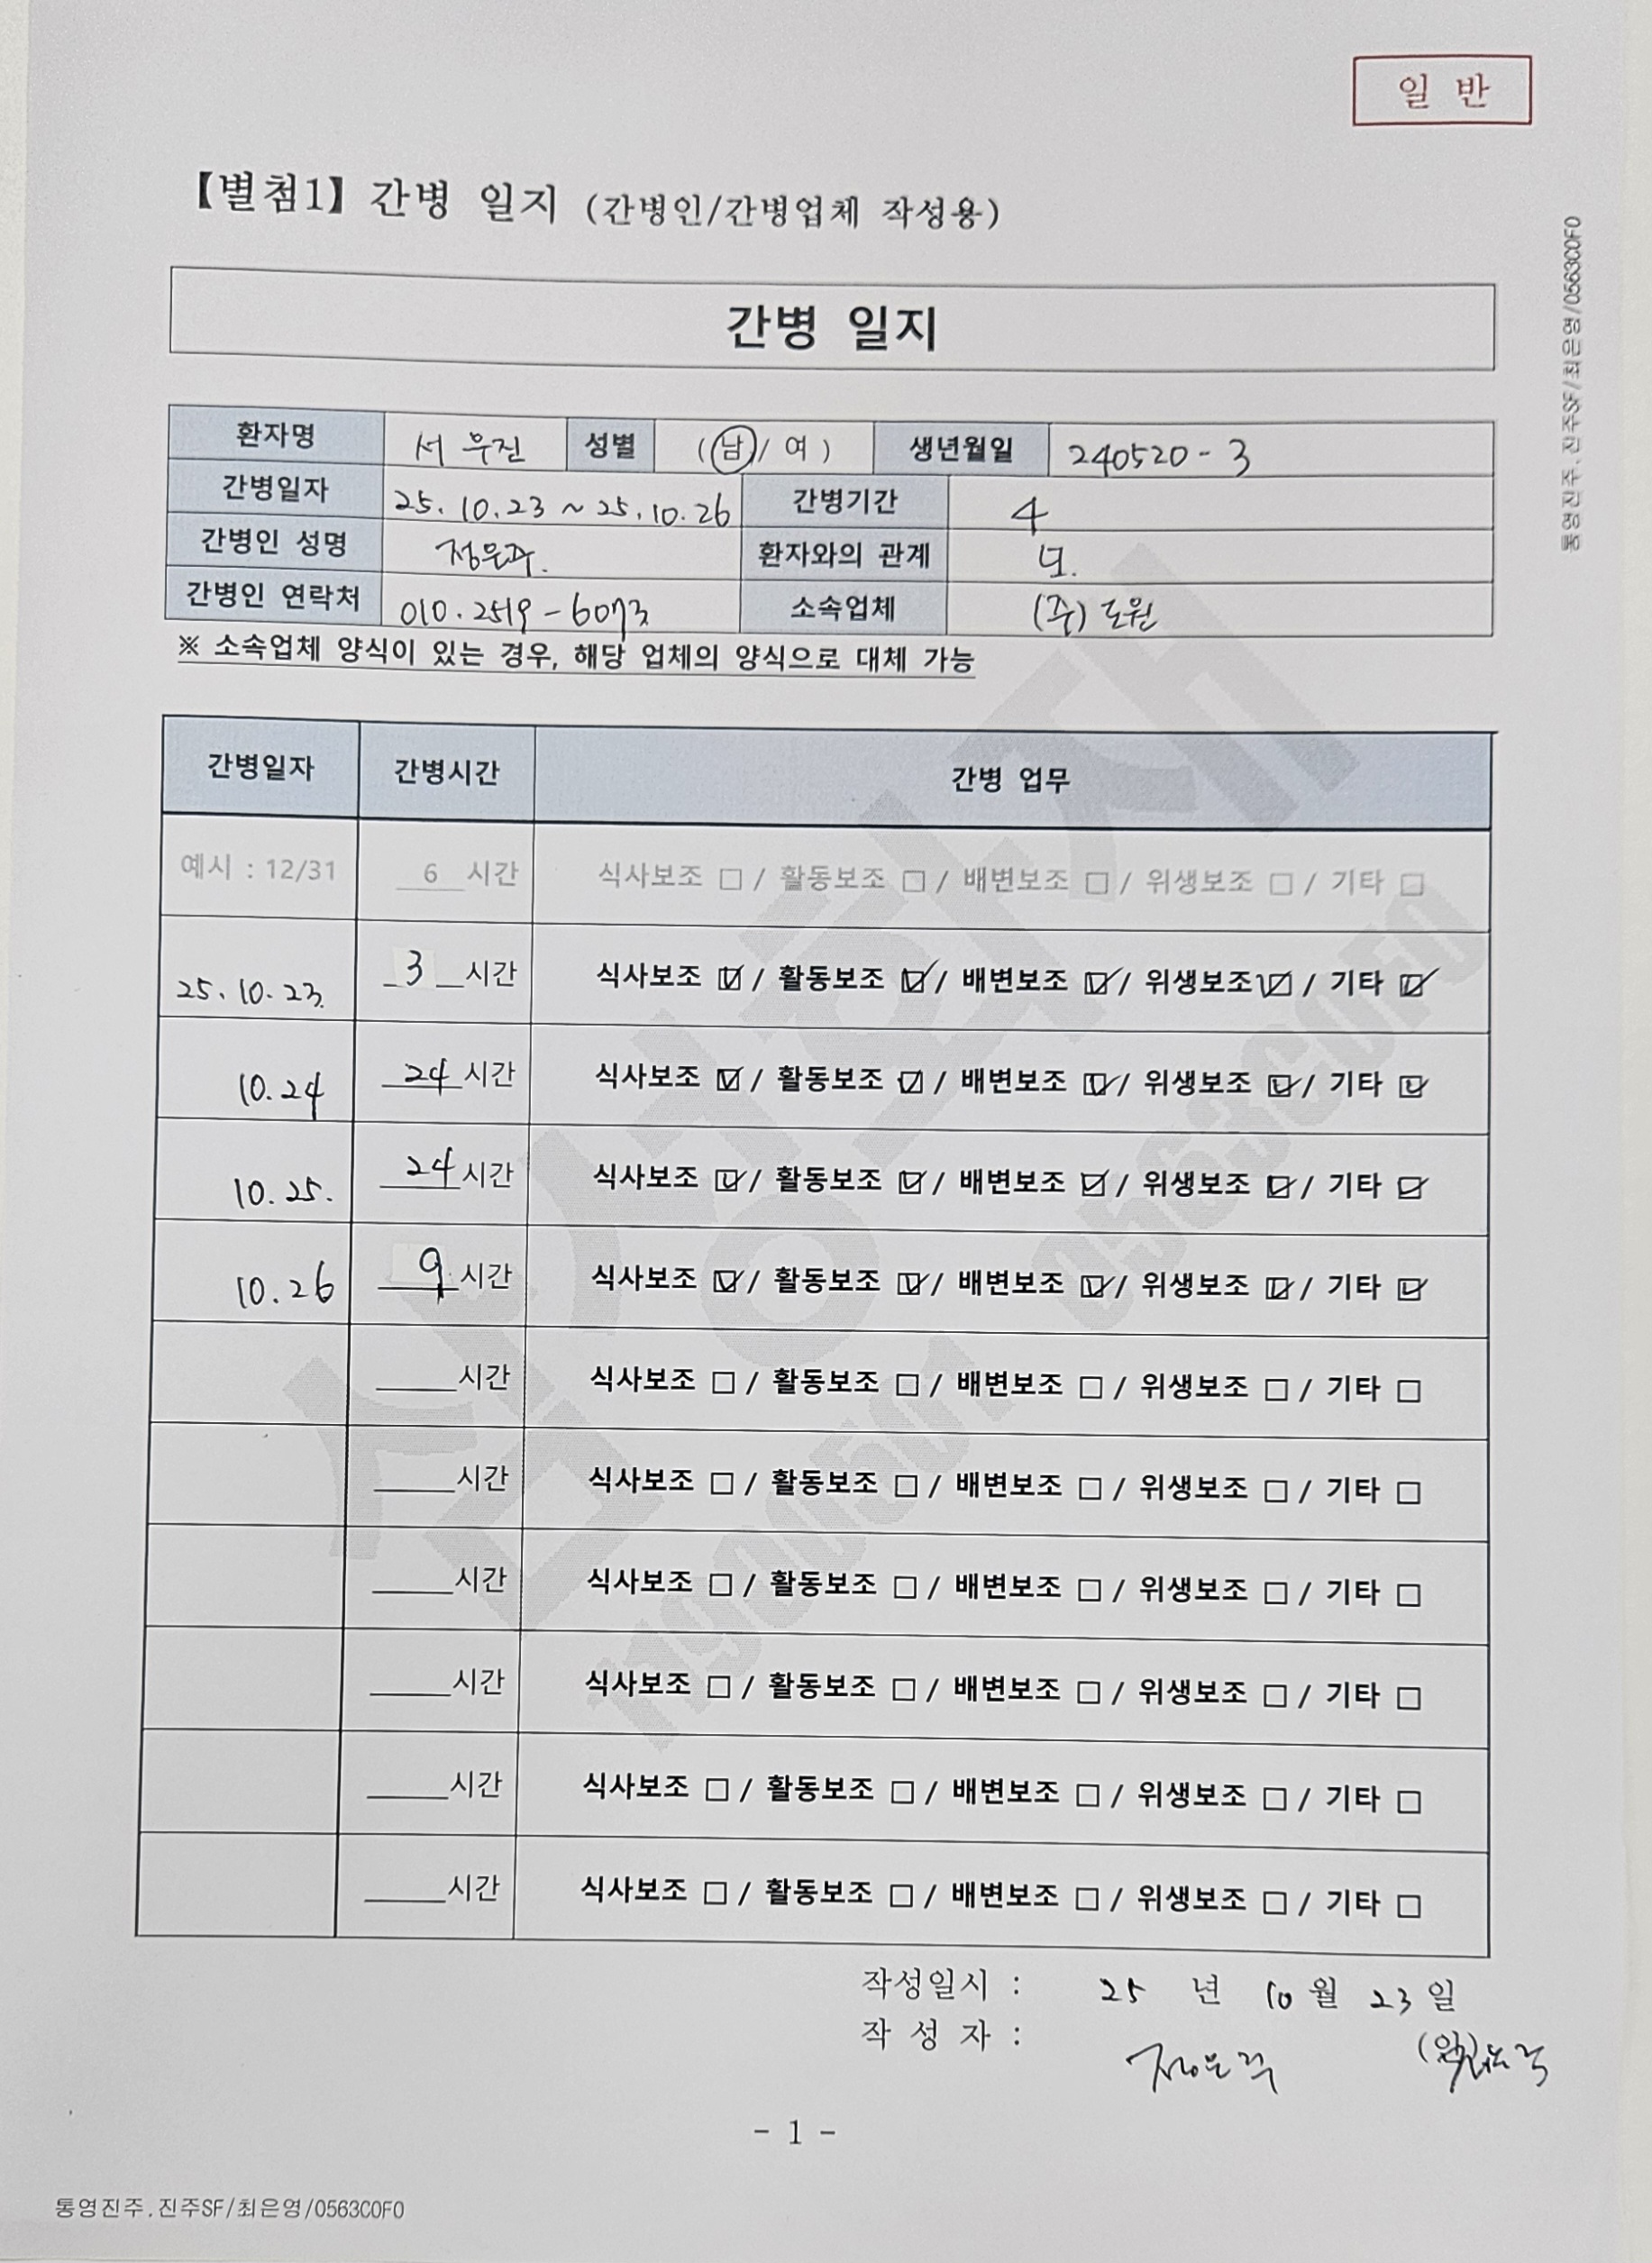 일 반
【별첨1】 간병 일지 (간병인/간병업체 작성용)
통영진주.진주SF/최은영/0563C0F0
간병 일지
환자명 서우진 성별 (남/여) 생년월일 240520-3
간병일자 25.10.23 ~ 25.10.26 간병기간 4
간병인 성명 환자와의 관계 모.
간병인 연락처 010.2519-6073 소속업체 (주)도원
※ 소속업체 양식이 있는 경우, 해당 업체의 양식으로 대체 가능
간병일자 간병시간 간병 업무
예시 : 12/31 6 시간 식사보조 □ / 활동보조 □ / 배변보조 □ / 위생보조 □ / 기타 □
25.10.23. 3 시간 식사보조 ☑ / 활동보조 ☑ / 배변보조 ☑ / 위생보조 ☑ / 기타 ☑
10.24 24 시간 식사보조 ☑ / 활동보조 ☑ / 배변보조 ☑ / 위생보조 ☑ / 기타 ☑
10.25. 24 시간 식사보조 ☑ / 활동보조 ☑ / 배변보조 ☑ / 위생보조 ☑ / 기타 ☑
10.26 9 시간 식사보조 ☑ / 활동보조 ☑ / 배변보조 ☑ / 위생보조 ☑ / 기타 ☑
____시간 식사보조 □ / 활동보조 □ / 배변보조 □ / 위생보조 □ / 기타 □
____시간 식사보조 □ / 활동보조 □ / 배변보조 □ / 위생보조 □ / 기타 □
____시간 식사보조 □ / 활동보조 □ / 배변보조 □ / 위생보조 □ / 기타 □
____시간 식사보조 □ / 활동보조 □ / 배변보조 □ / 위생보조 □ / 기타 □
____시간 식사보조 □ / 활동보조 □ / 배변보조 □ / 위생보조 □ / 기타 □
____시간 식사보조 □ / 활동보조 □ / 배변보조 □ / 위생보조 □ / 기타 □
삼성화재
0563C0F0
작성일시 : 25 년 10 월 23 일
작 성 자 : (인)
- 1 -
통영진주.진주SF/최은영/0563C0F0